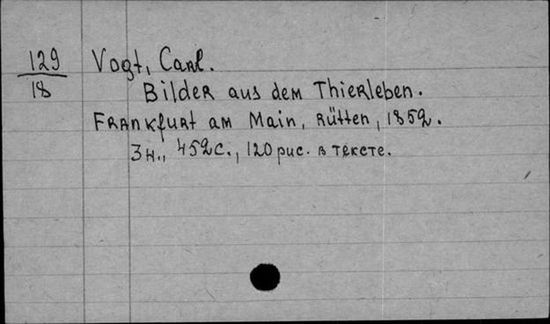 129
18
Vogt, Carl.
Bilder aus dem Thierleben.
Frankfurt am Main, Rütten, 1852.
3 н., 452 с., 120 рис. в тексте.